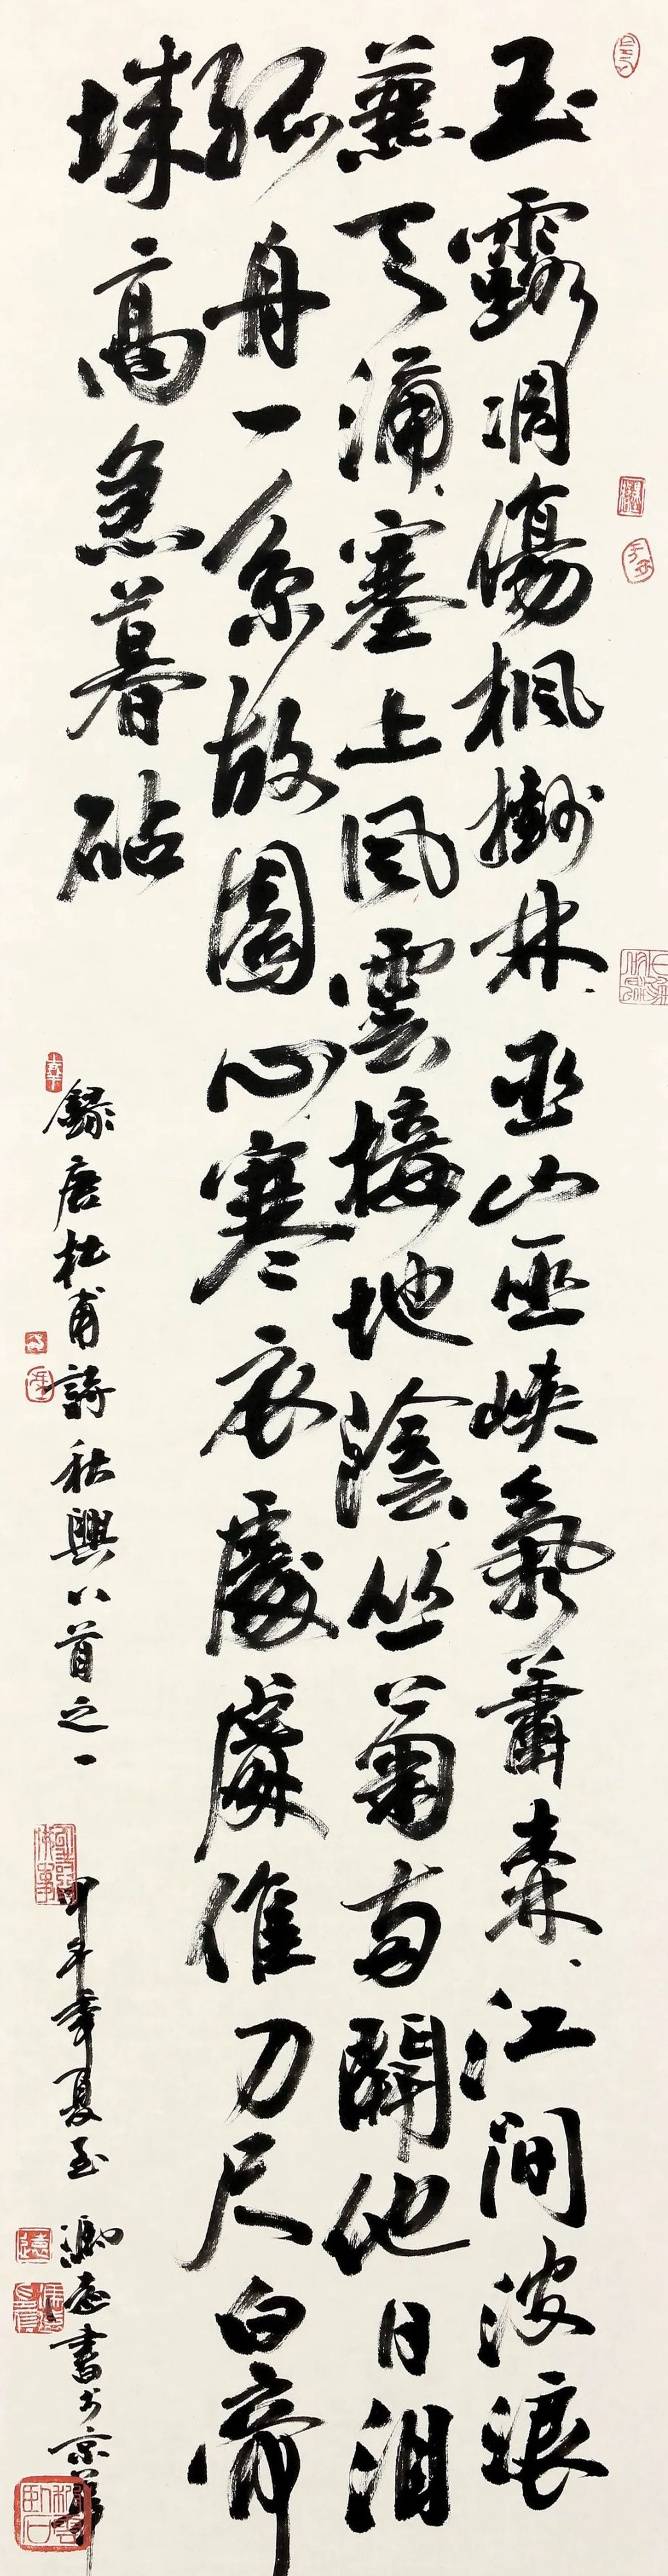 玉露凋傷楓樹林巫山巫峽氣蕭森江間波浪
兼天涌塞上風雲接地陰叢菊兩開他日淚
孤舟一系故園心寒衣處處催刀尺白帝
城高急暮砧
錄唐杜甫詩秋興八首之一
甲午年夏至 書於京華